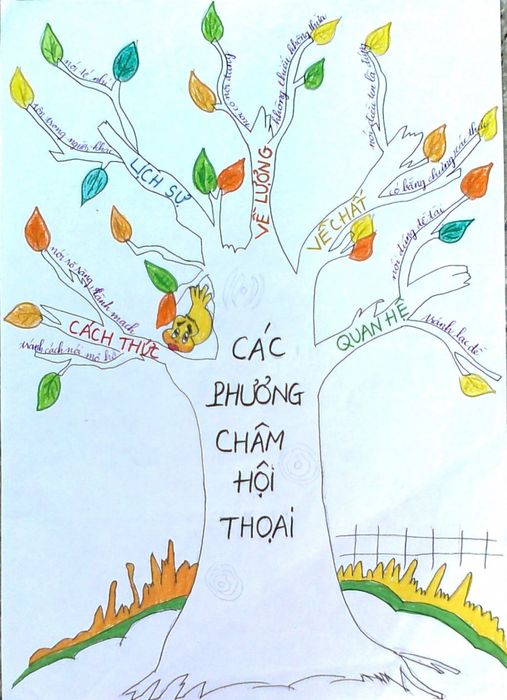 CÁC
PHƯƠNG
CHÂM
HỘI
THOẠI
CÁCH THỨC
nói rõ ràng rành mạch
tránh cách nói mơ hồ
LỊCH SỰ
nói tế nhị
tôn trọng người khác
VỀ LƯỢNG
nói có nội dung
không thiếu không thừa
VỀ CHẤT
nói điều tin là đúng
có bằng chứng xác thực
QUAN HỆ
nói đúng đề tài
tránh lạc đề